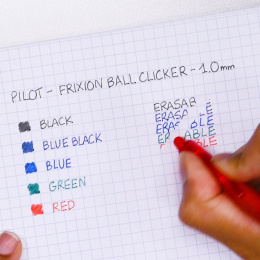 PILOT - FRIXION BALL CLICKER - 1.0mm
BLACK
BLUE BLACK
BLUE
GREEN
RED
ERASAB E
ERAS BLE
ERA BLE
ER ABLE
BLE